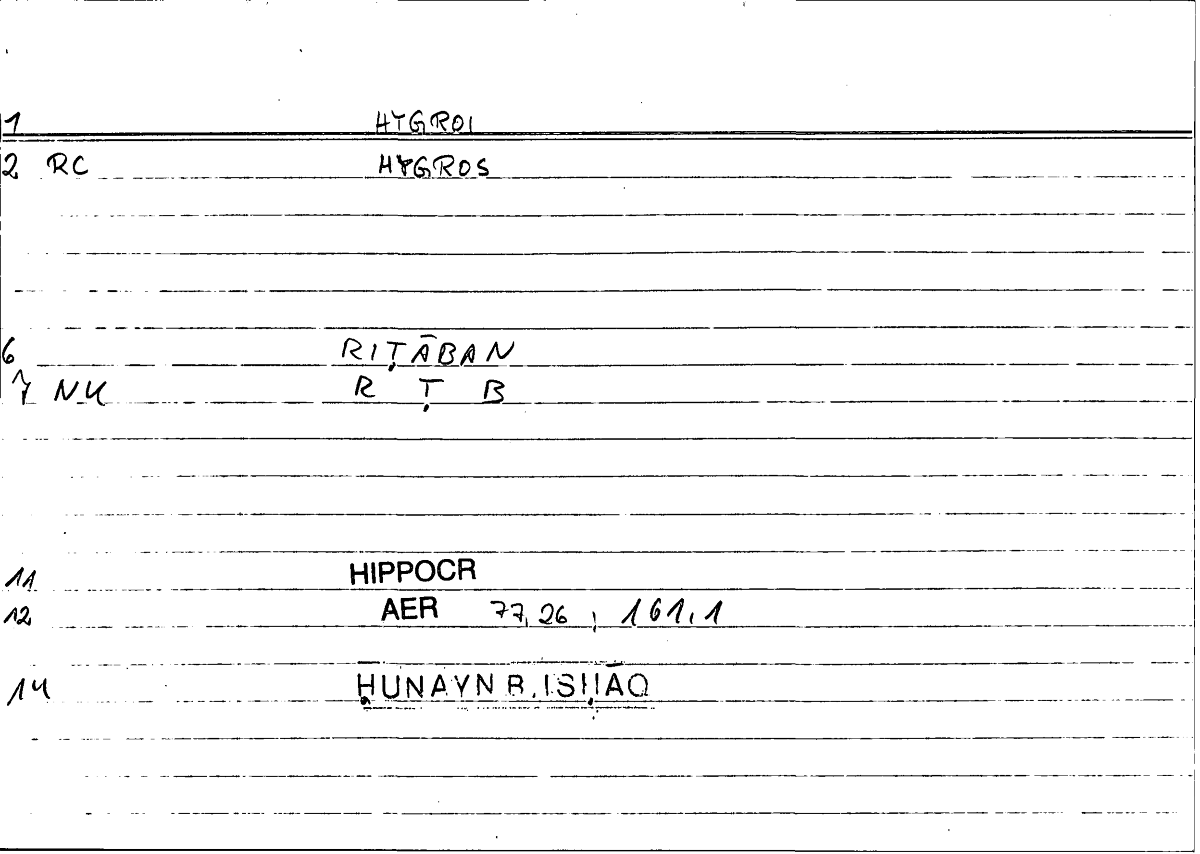 1 HYGROI
2 RC HYGROS
6 RIṬĀBAN
7 NK R Ṭ B
11 HIPPOCR
12 AER 77,26 ; 161,1
14 ḤUNAYN B. ISḤĀQ